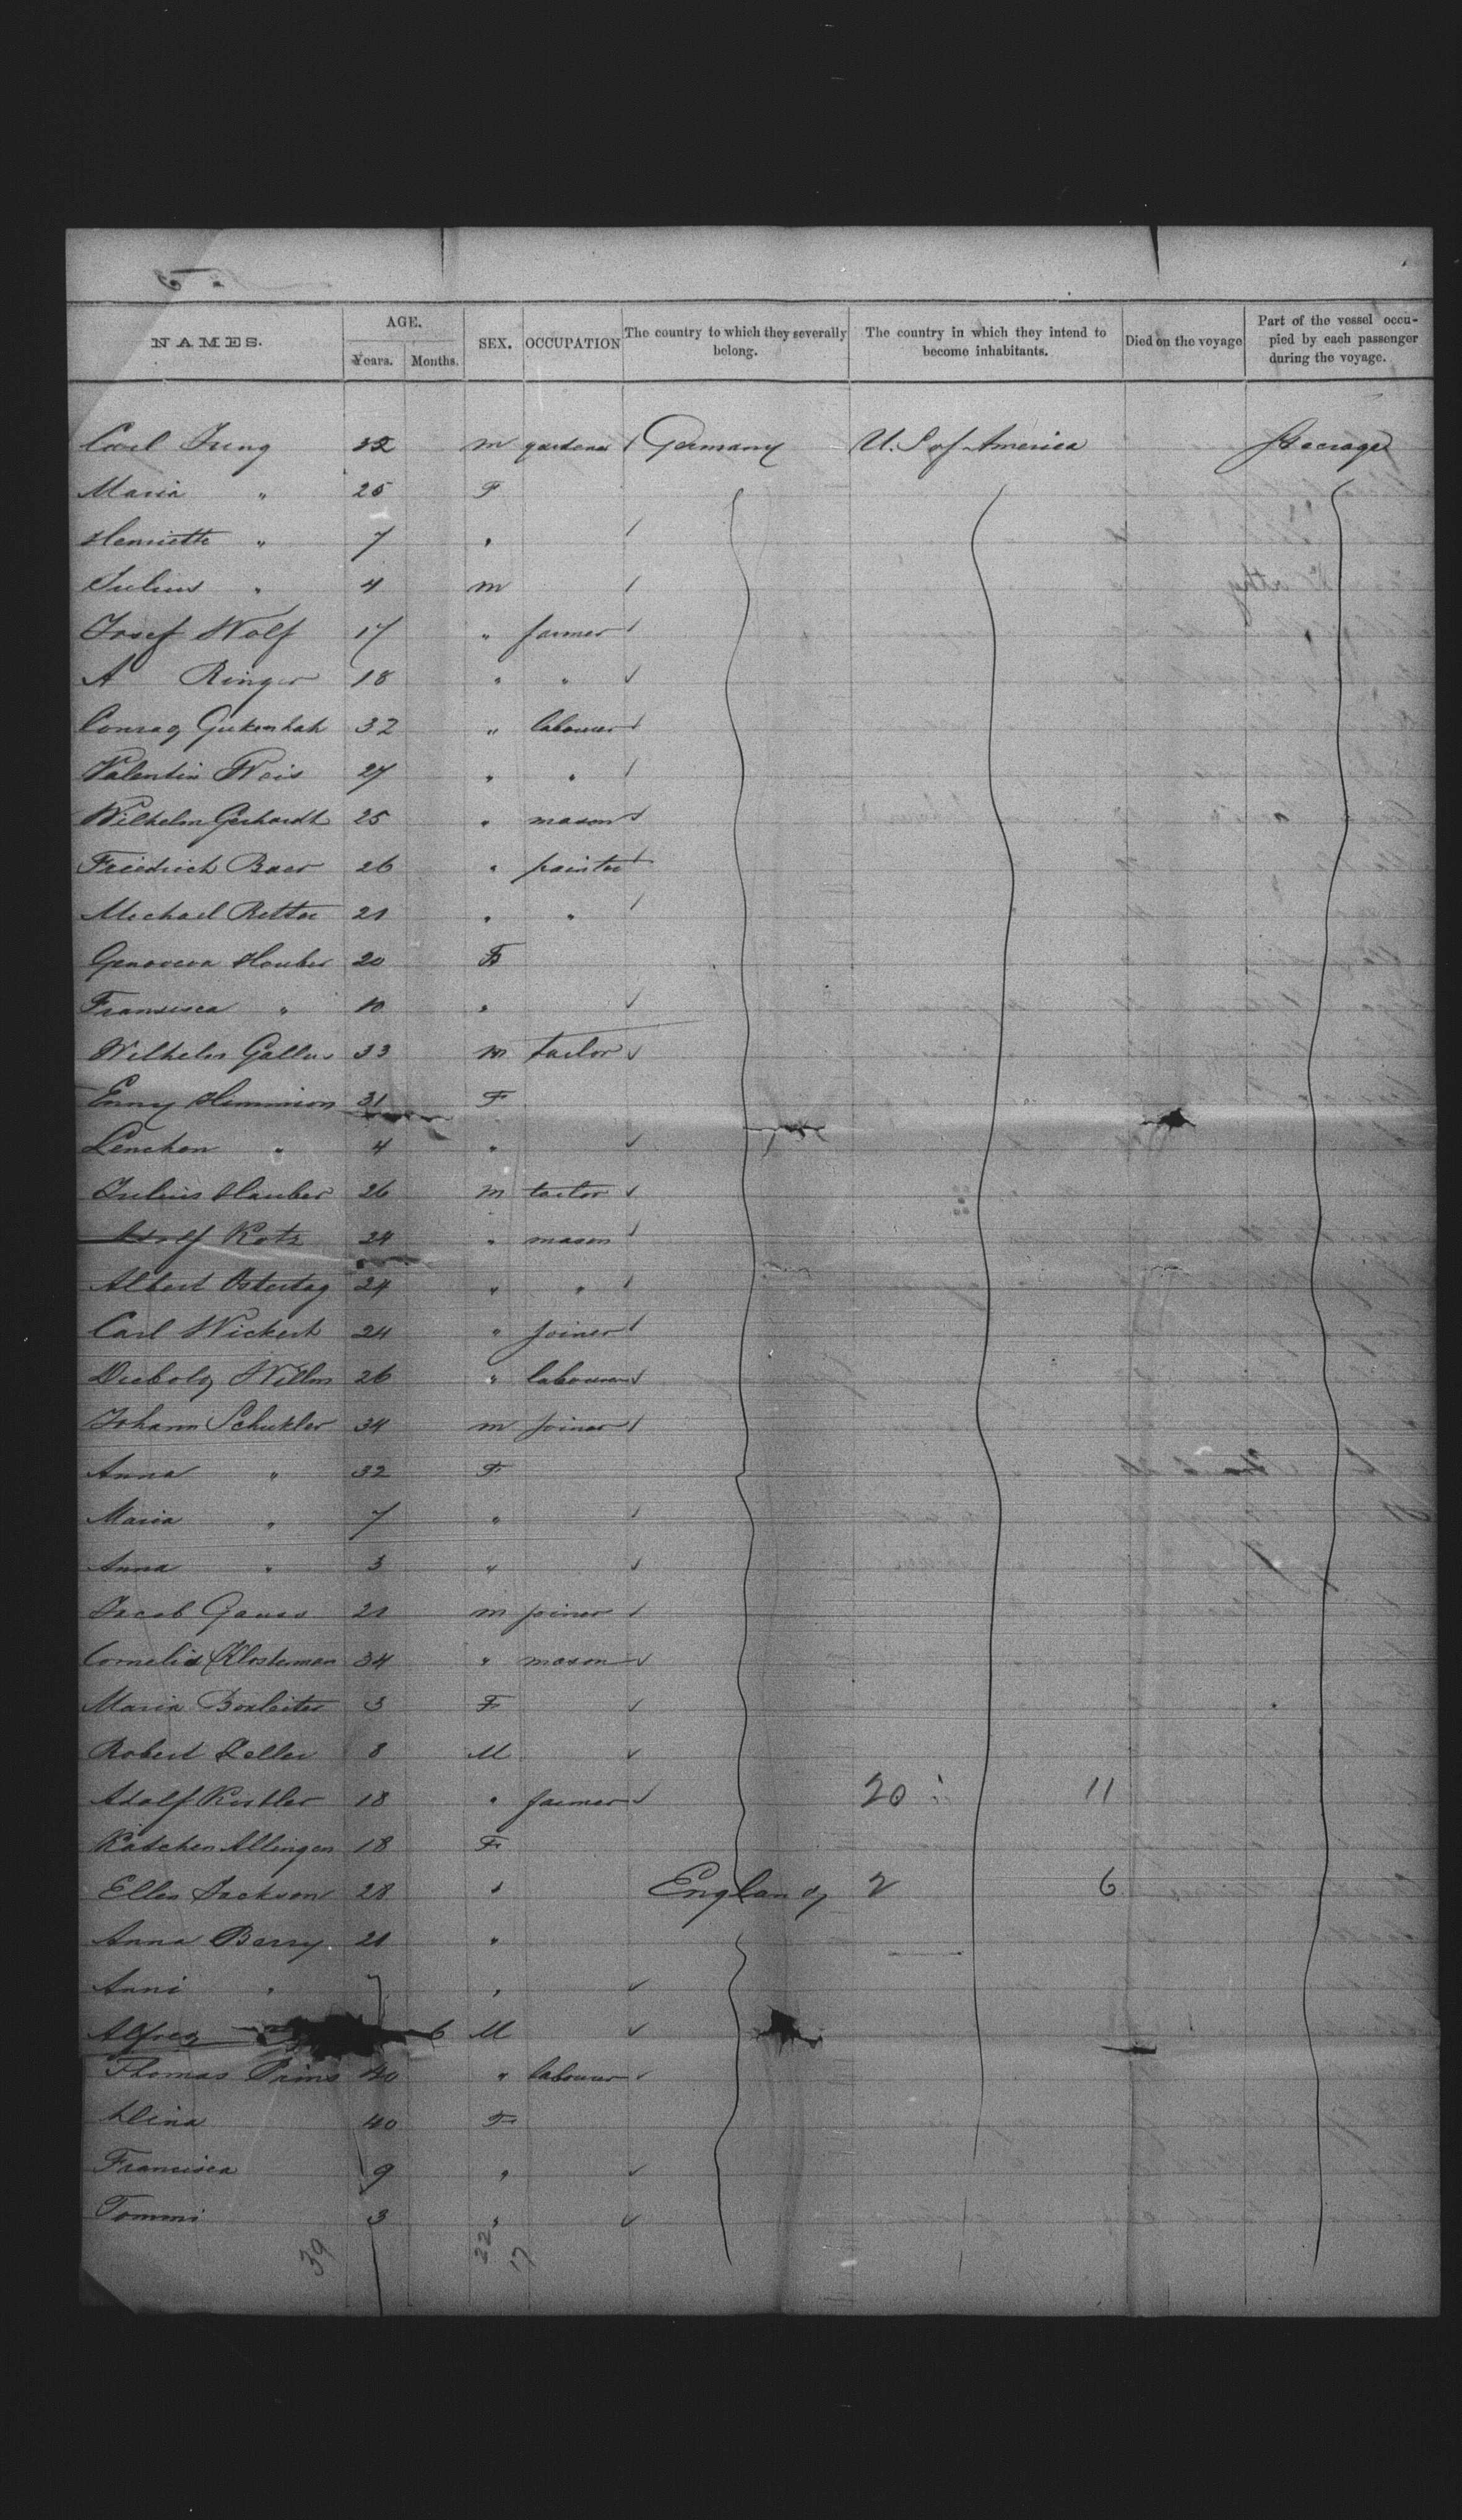 NAMES. AGE. Years. Months. SEX. OCCUPATION The country to which they severally belong. The country in which they intend to become inhabitants. Died on the voyage Part of the vessel occupied by each passenger during the voyage.
Carl Jung 32 m gardener Germany U. S of America Steerage
Maria " 25 F
Henriette " 7 "
Julius " 4 m
Josef Wolf 17 " farmer
A Ringer 18 " "
Conrad 32 " labourer
Valentin Weis 27 " "
Wilhelm Gerhardt 25 " mason
Friedrich Baer 26 " painter
Michael Ritter 21 " "
Genoveva Hauber 20 F
Fransisca " 10 "
Wilhelm Gallus 33 m tailor
Enny Hemmion 31 F
Lenchen " 4 "
Julius Hauber 26 m tailor
Adolf Kotz 24 " mason
Albert Ostertag 24 " "
Carl Wickert 24 " joiner
Diebold Willm 26 " labourer
Johann Schukler 34 m joiner
Anna " 32 F
Maria " 7 "
Anna " 3 "
Jacob Gauss 21 m joiner
Cornelid Klosterman 34 " mason
Maria Boxleiter 3 F
Robert Zeller 8 M
Adolf Kustler 18 " farmer 20 11
Kätchen Allinger 18 F
Ellen Jackson 28 " England 2 6
Anna Berry 21 "
Anni " 7 "
Alfred 6 M
Thomas Prims 40 " labourer
Alina 40 F
Francisca 9 "
Tommi 3 "
39 22 17